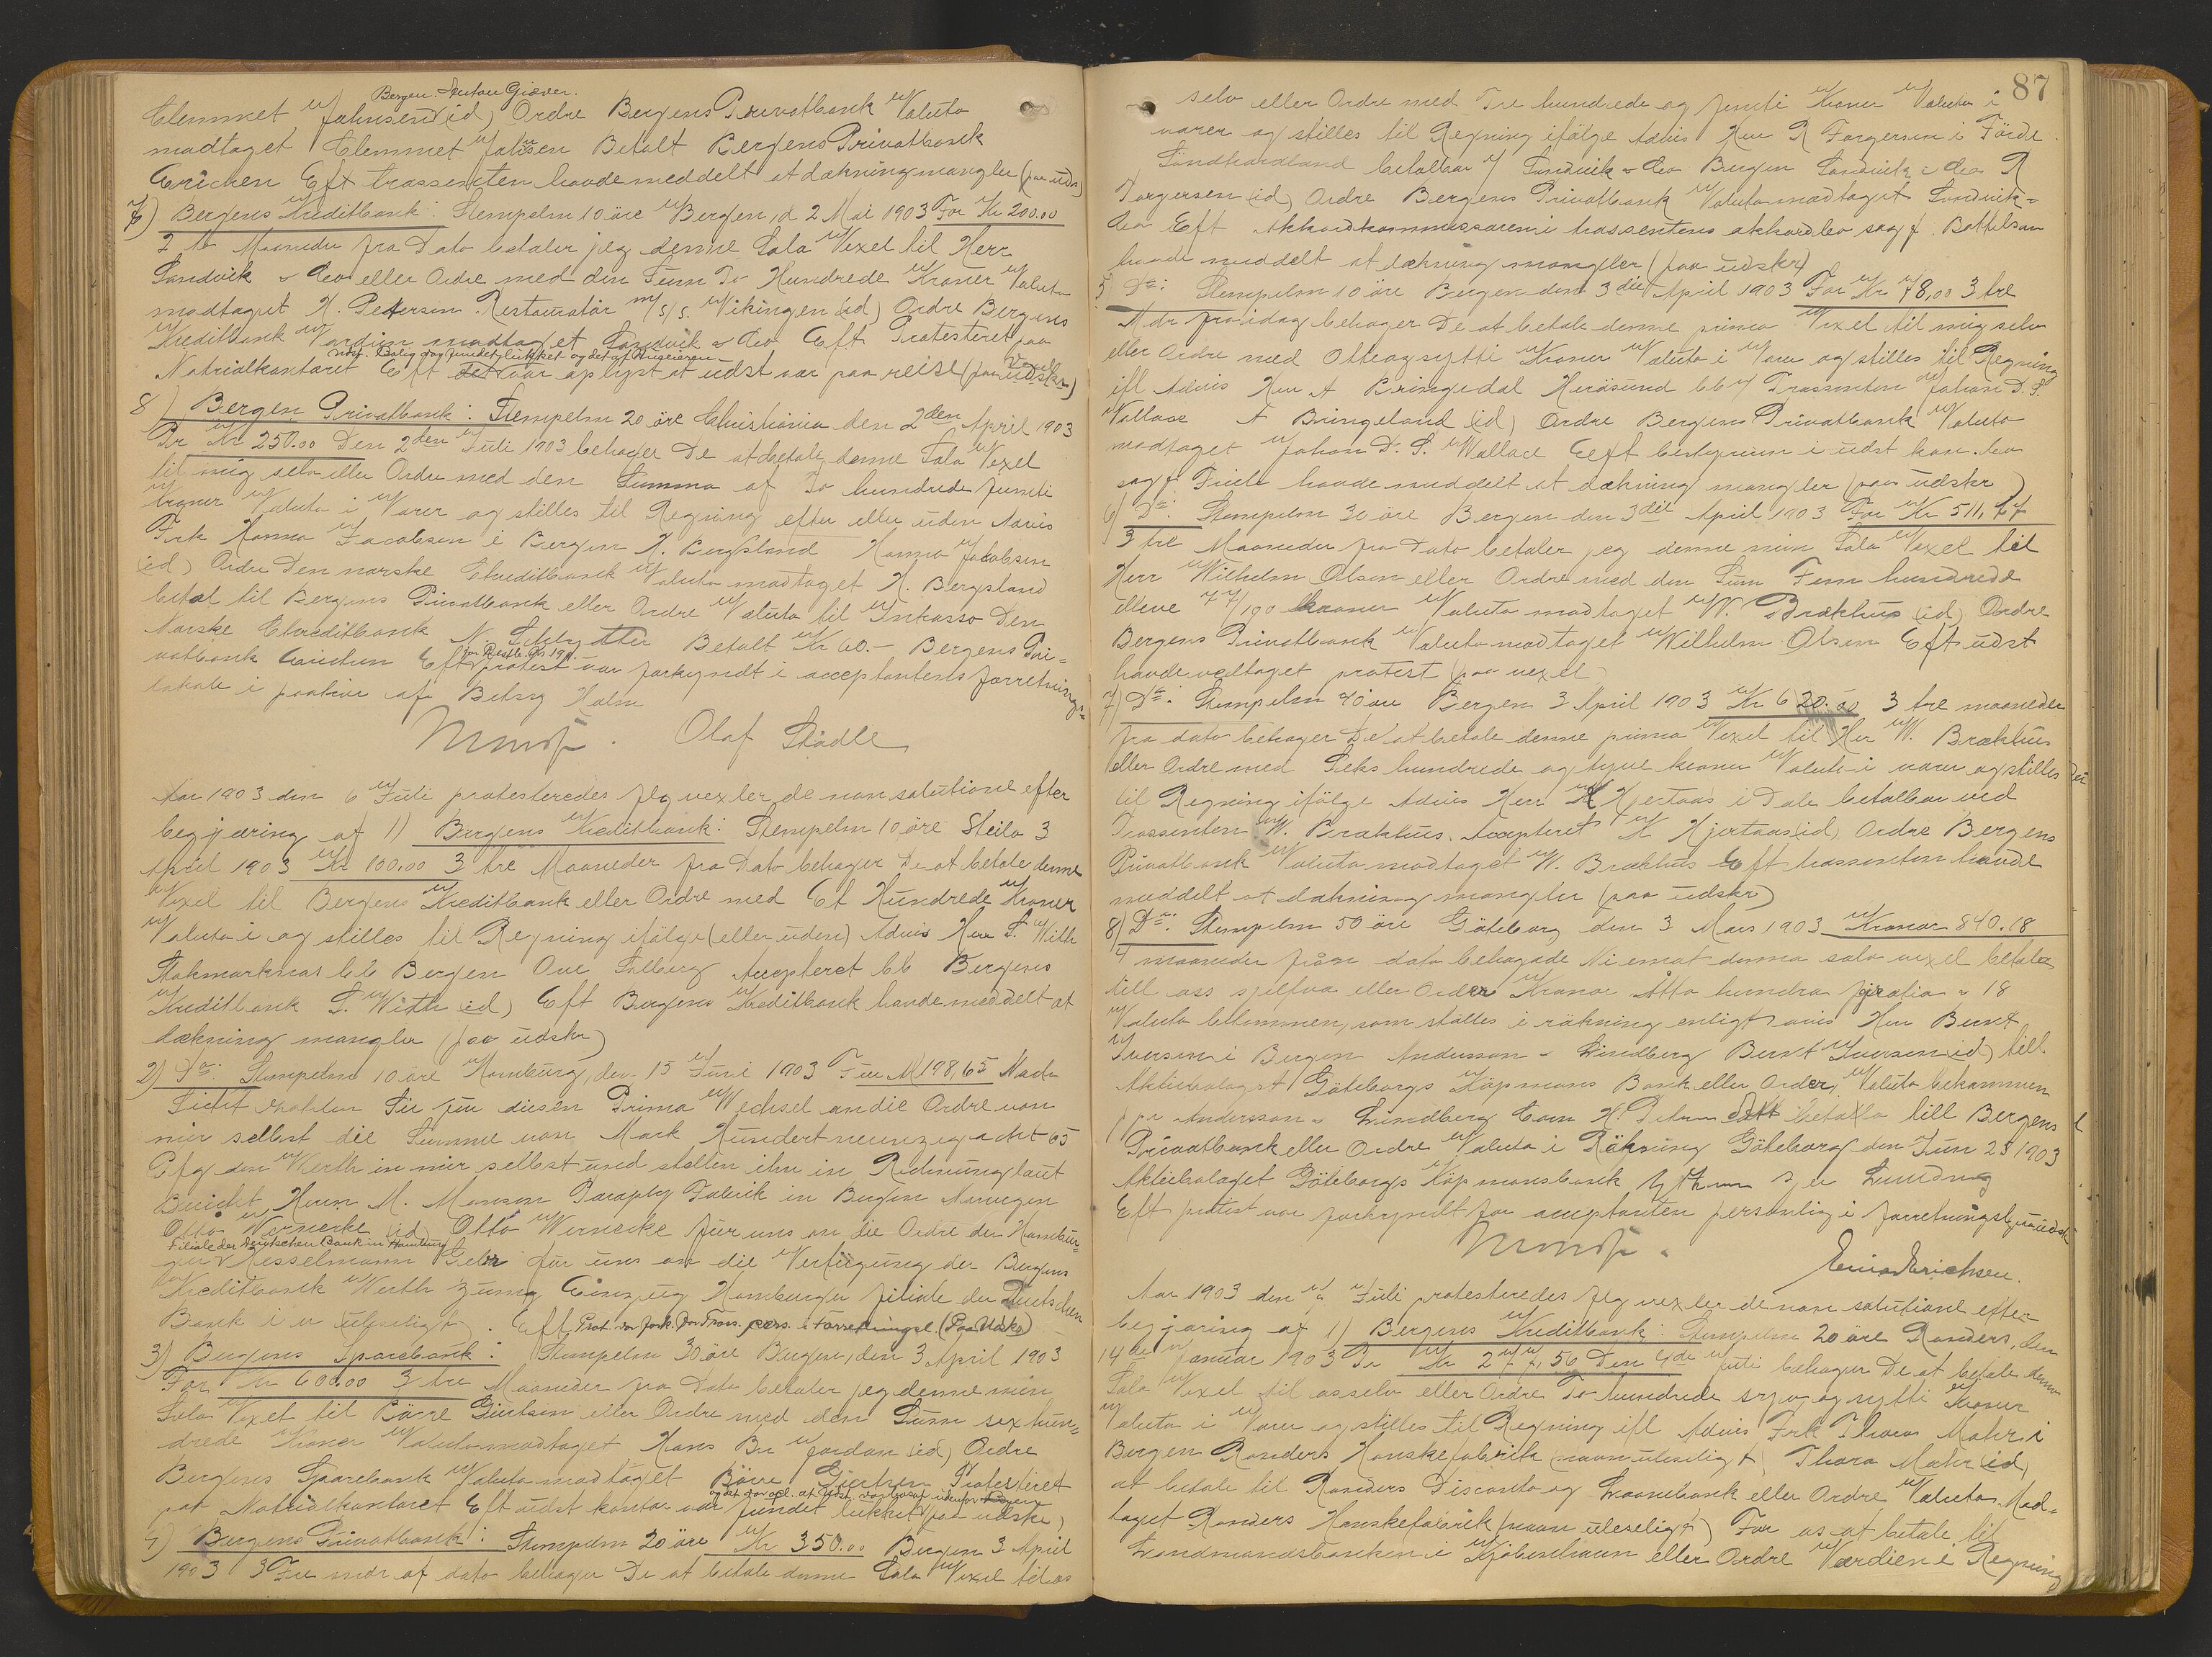 Bergen. Gustav Giæver.
Clemmet Jahnsen (id) Ordre Bergens Privatbank Valuta
modtaget Clemmet Jahnsen Betalt Bergens Privatbank
Erichsen Eft trassenten havde meddelt at dækning mangler (paa udskr)
7) Bergens Kreditbank: Stempelm 10 öre Bergen, d 2 Mai 1903 For Kr 200.00
2 to Maaneder fra Dato betaler jeg denne Sola Vexel til Herr
Sandvik & Co eller Ordre med den Sum To Hundrede Kroner Valuta
modtaget H. Pedersen Restauratör m/s/s. Vikingen (id) Ordre Bergens
Kreditbank Værdien modtaget Sandvik & Co Eft Protesteret paa
udst. Bolig var fundet lukket og det af
Notrialkontoret Eft var oplyst at udst var paa reise (paa udskr)
8) Bergen Privatbank: Stempelm 20 öre Christiania den 2den April 1903
Pr Kr 250.00 Den 2den Juli 1903 behager De at betale denne Sola Vexel
til mig selv eller Ordre med den Summa af To hundrede femti
kroner Valuta i Varer og stilles til Regning efter eller uden Advis
Frk Hanna Jacobsen i Bergen H. Bergsland Hanna Jakobsen
(id) Ordre Den norske Creditbank Valuta modtaget H. Bergsland
betal til Bergens Privatbank eller Ordre Valuta til Inkasso Den
Norske Creditbank N. Betalt Kr 60.- Bergens Pri-
for Restb. Kr 190
vatbank Erichsen Eft protest var forkyndt i acceptantens forretnings-
lokale i paahør af Betsy Holm
Olaf Stadle
Aar 1903 den 6 Juli protesteredes flg vexler de non solutione efter
begjæring af 1) Bergens Kreditbank: Stempelm 10 öre Steila 3
April 1903 Kr 100.00 3 tre Maaneder fra Dato behager De at betale denne
Vexel til Bergens Kreditbank eller Ordre med Et Hundrede Kroner
Valuta i og stilles til Regning ifölge (eller uden) Advis Herr S. With
Stakmarknes bb Bergen Ove Solberg Accepteret bb Bergens
Kreditbank S. With (id) Eft Bergens Kreditbank havde meddelt at
dækning mangler (paa udskr)
2) Do: Stempelm 10 öre Hamburg, den 15 Juni 1903 Für M 198,65 Nach
Sicht zahlen Sie für diesen Prima Wechsel an die Ordre von
mir selbst die Summe von Mark Hundertneunzigacht 65
Pfg den Werth in mir selbst und stellen ihn in Rechnung laut
Bericht Herrn M. Monsen Paraply Fabrik in Bergen Norwegen
Otto Wernecke (id) Otto Wernecke für uns an die Ordre der Hambur-
Filiale der Deutschen Bank in Hamburg
ger Hesselmann Gebr für uns an die Verfügung der Bergens
Kreditbank Werth zum Einzug Hamburger filiale der Deutschen
Bank i u (uleseligt). Eft Prot. var fork. for Trass. pers. i Forretningsl. (Paa Udskr)
3) Bergens Sparebank: Stempelm 30 öre Bergen, den 3 April 1903
For Kr 600.00 3 tre Maaneder fra Dato betaler jeg denne min
Sola Vexel til Börre Giertsen eller Ordre med den Sum sex hun-
drede Kroner Valuta modtaget Hans Br Jordan (id) Ordre
Bergens Sparebank Valuta modtaget Börre Gjertsen Protesteret
og det var opl. at Udst. var bosat udenfor Bergen
paa Notrialkontoret Eft udst kontor var fundet lukket (paa udskr)
4) Bergens Privatbank: Stempelm 20 öre Kr 350.00 Bergen 3 April
1903 3 Tre mdr af dato behager De at betale denne Sola Vexel til os
87
selv eller Ordre med Tre hundrede og femti Kroner Valuta i
varer og stilles til Regning ifölge Advis Herr R Torgersen i Förde
Söndhordland betalbar / Sandvik & Co Bergen Sandvik & Co R
Torgersen (id) Ordre Bergens Privatbank Valuta modtaget Sandvik &
Co Eft Akkordkommissæren i trassentens akkordbo sagf. Bottelsen
havde meddelt at dækning mangler (paa udskr)
5 Do: Stempelm 10 öre Bergen den 3die April 1903 For Kr 78,00 3 tre
Mdr fra idag behager De at betale denne prima Vexel til mig selv
eller Ordre med Otteogsytti Kroner Valuta i Varer og stilles til Regning
ifl Advis Herr A Bringedal Herösund bb / Trassenten Johan D. S.
Wallace A Bringeland (id) Ordre Bergens Privatbank Valuta
modtaget Johan D. S. Wallace Eeft bestyreren i udst kon. bo
sagf havde meddelt at dækning mangler (paa udskr)
6) Do: Stempelm 30 öre Bergen den 3die April 1903 For Kr 511,77
3 tre Maaneder fra Dato betaler jeg denne min Sola Vexel til
Herr Wilhelm Olsen eller Ordre med den Sum Fem hundrede
elleve 77/100 kroner Valuta modtaget W. Brækhus (id) Ordre
Bergens Privatbank Valuta modtaget Wilhelm Olsen Eft udst
havde vedtaget protest (paa vexel
7) Do: Stempelm 40 öre Bergen 3 April 1903 Kr 620.00 3 tre maaneder
fra dato behager De at betale denne prima Vexel til Her W. Brækhus
eller Ordre med Seks hundrede og tyve kroner Valuta i varer og stilles
til Regning ifölge Advis Herr K Hjertaas i Dale betalbar ved
Trassenten W. Brækhus. Accepteret K Hjertaas (id) Ordre Bergens
Privatbank Valuta modtaget W. Brækhus Eft trassenten havde
meddelt at dækning mangler (paa udskr)
8) Do: Stempelm 50 öre Göteborg den 3 Mars 1903 Kronor 840.18
4 maaneder från dato behagade Ni emot denna sola vexel betala
till oss sjelfva eller Order Kronor Åtta hundra fyratio & 18
Valuta bekommen, som ställes i räkning enligt avis Herr Bernt
Iversen i Bergen Andersson & Lindberg Bernt Iversen (id) till
Aktiebolaget Göteborgs Köpmans Bank eller Order, Valuta bekommen
p pr Andersson & Lindberg Com H. betala till Bergens
Privatbank eller Ordre Valuta i Räkning Göteborg den Juni 23 1903
Aktiebolaget Göteborgs Köpmansbank
Eft protest var forkyndt for acceptanten personlig i forretningsl. paa udsk
Einar Erichsen.
Aar 1903 den 7/ Juli protesteredes flg vexler de non solutione efter
begjæring af 1) Bergens Kreditbank: Stempelm 20 öre Randers, den
14de Januar 1903 Pr Kr 277,56 Den 4de Juli behager De at betale denne
Sola Vexel til os selv eller Ordre To hundrede syv og sytti Kroner
Valuta i Varer og stilles til Regning ifl Advis Frk Thora Mohr i
Bergen Randers Hanskefabrik (navn uleseligt) Thora Mohr (id)
at betale til Randers Disconto og Laanebank eller Ordre Valuta Mod-
taget Randers Hanskefabrik (navn uleseligt) For os at betale til
Landmandsbanken i Kjöbenhavn eller Ordre Værdien i Regning